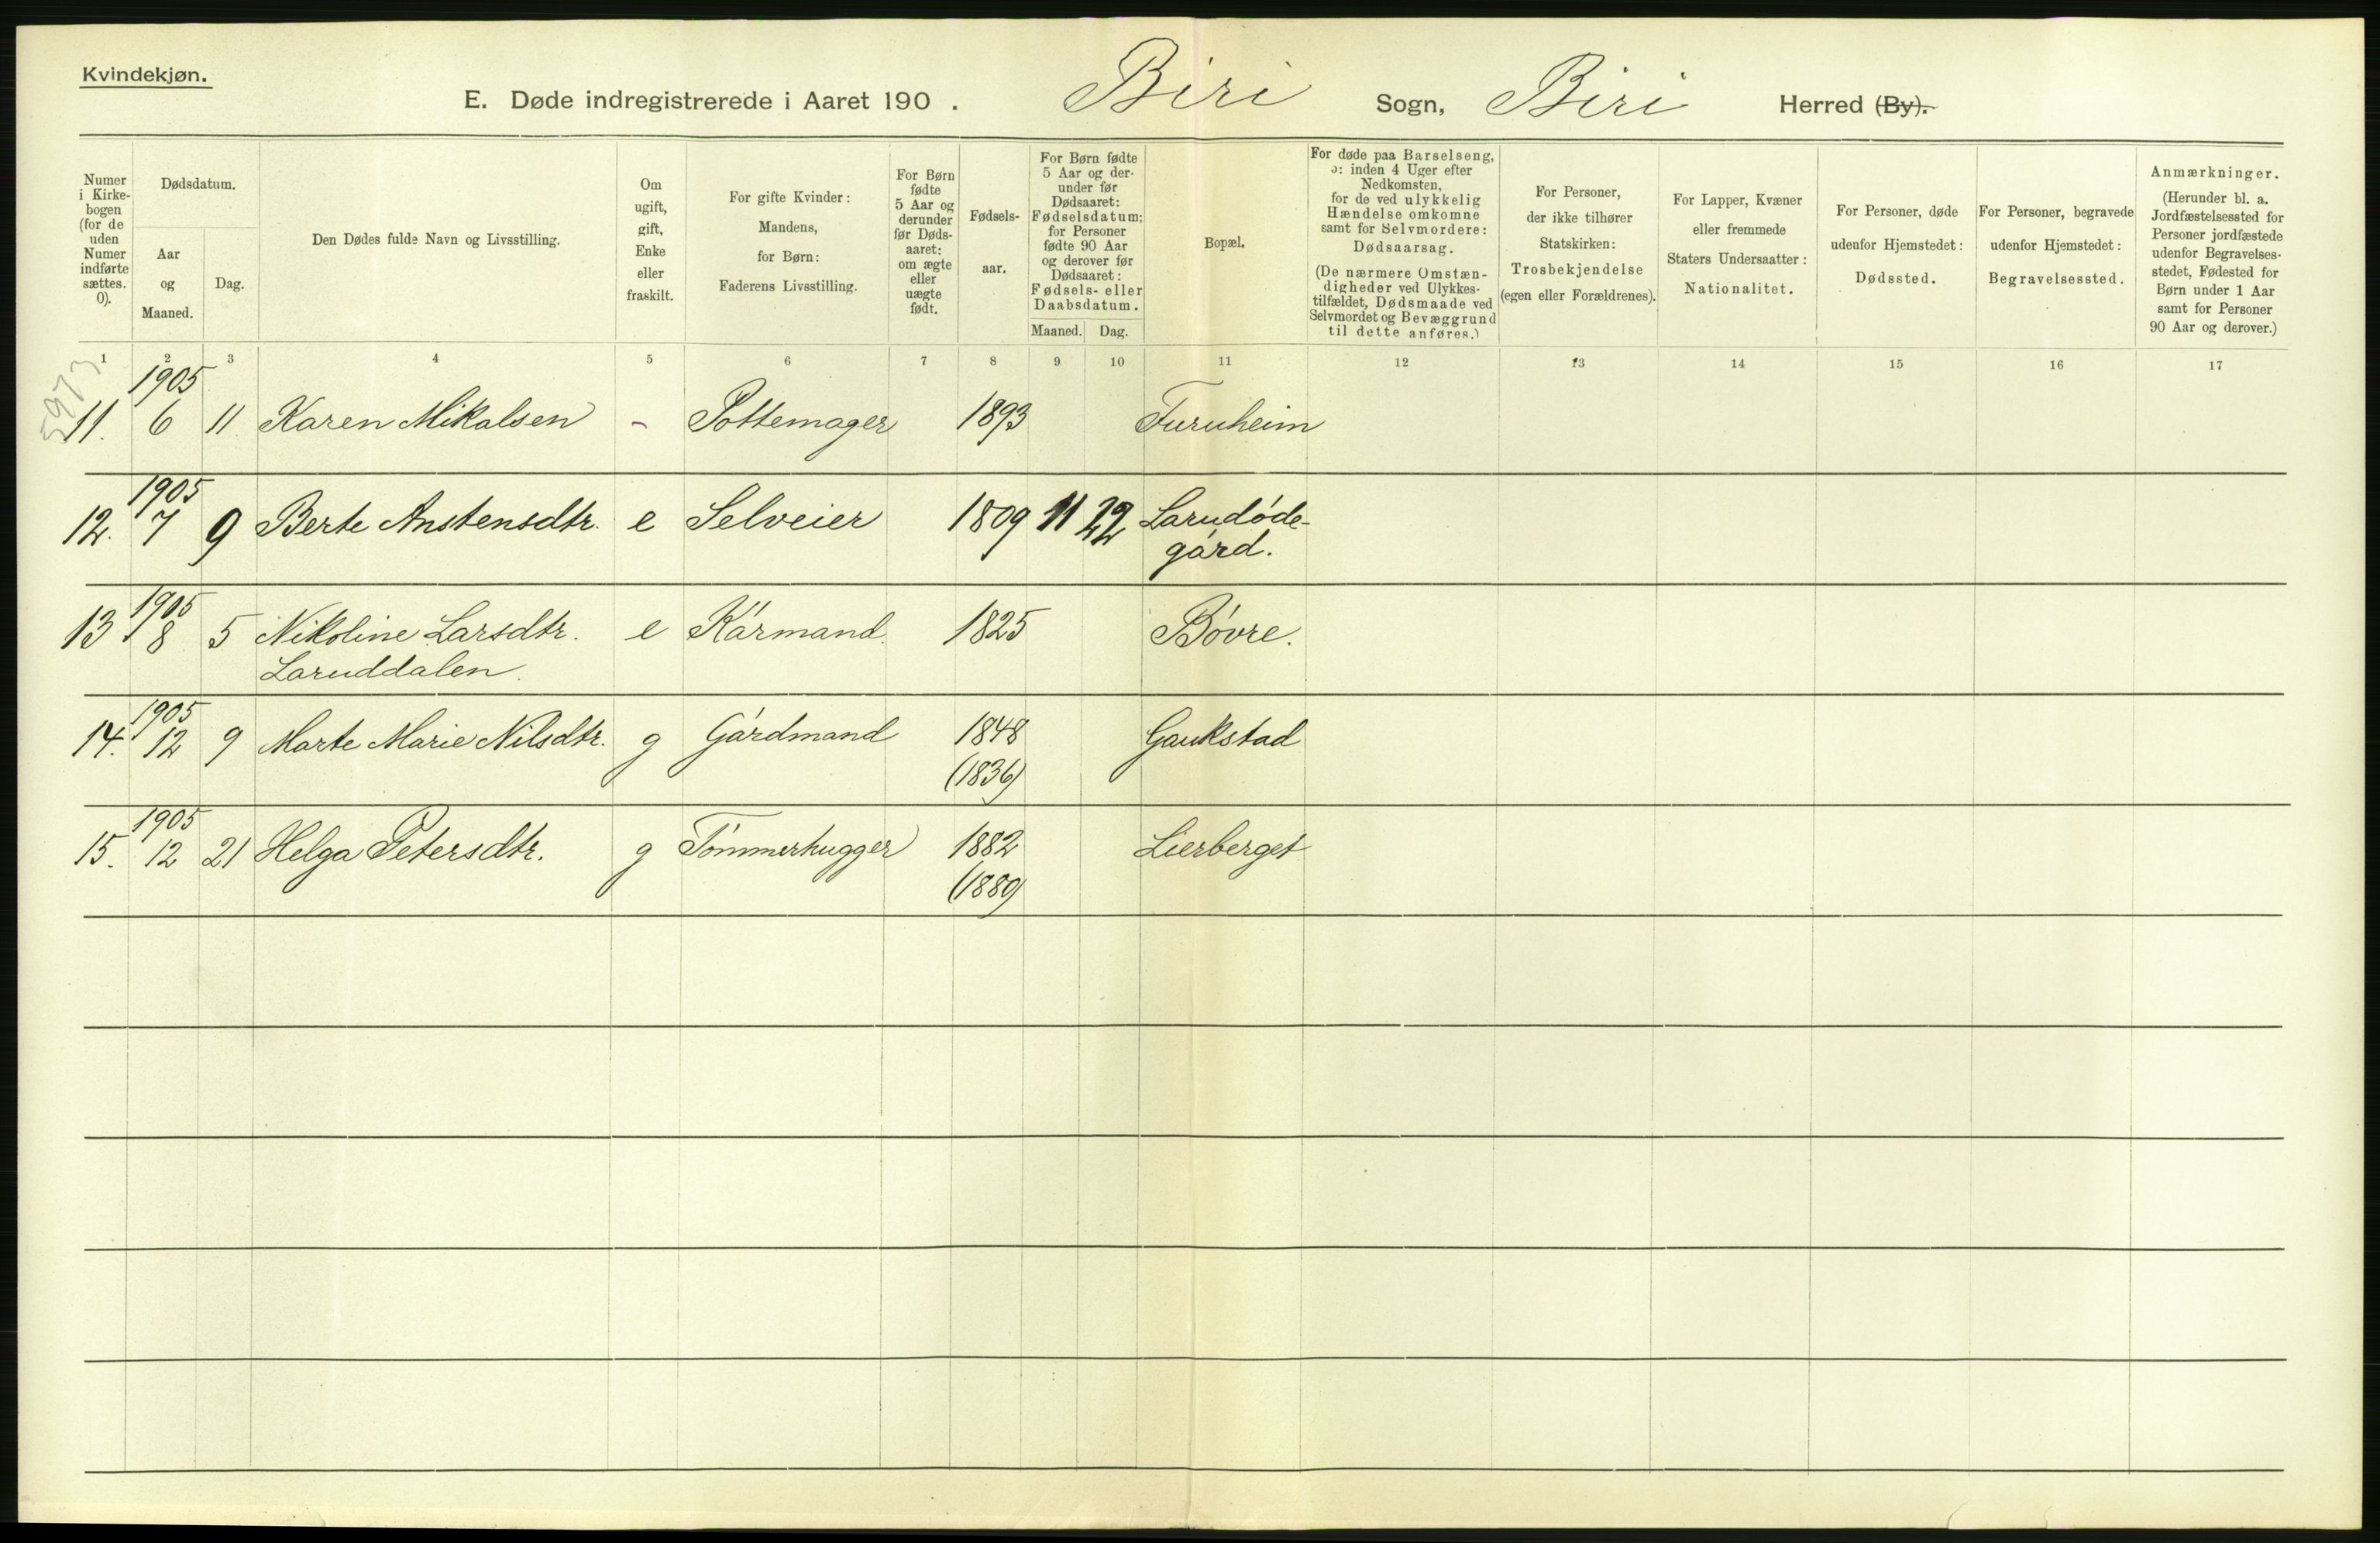 Kvindekjøn.
E. Døde indregistrerede i Aaret 190 . Biri Sogn, Biri Herred (By).
Numer i Kirkebogen (for de uden Numer indførte sættes. 0).
Dødsdatum.
Aar og Maaned.
Dag.
Den Dødes fulde Navn og Livsstilling.
Om ugift, gift, Enke eller fraskilt.
For gifte Kvinder: Mandens, for Børn: Faderens Livsstilling.
For Børn fødte 5 Aar og derunder før Dødsaaret: om ægte eller uægte født.
Fødselsaar.
For Børn fødte 5 Aar og derunder før Dødsaaret: Fødselsdatum; for Personer fødte 90 Aar og derover før Dødsaaret: Fødsels- eller Daabsdatum.
Maaned. Dag.
Bopæl.
For døde paa Barselseng, ɔ: inden 4 Uger efter Nedkomsten, for de ved ulykkelig Hændelse omkomne samt for Selvmordere: Dødsaarsag.
(De nærmere Omstændigheder ved Ulykkestilfældet, Dødsmaade ved Selvmordet og Bevæggrund til dette anføres.)
For Personer, der ikke tilhører Statskirken: Trosbekjendelse (egen eller Forældrenes).
For Lapper, Kvæner eller fremmede Staters Undersaatter: Nationalitet.
For Personer, døde udenfor Hjemstedet: Dødssted.
For Personer, begravede udenfor Hjemstedet: Begravelsessted.
Anmærkninger.
(Herunder bl. a. Jordfæstelsessted for Personer jordfæstede udenfor Begravelsesstedet, Fødested for Børn under 1 Aar samt for Personer 90 Aar og derover.)
1 2 3 4 5 6 7 8 9 10 11 12 13 14 15 16 17
1905
11. 6 11 Karen Mikalsen - Pottemager 1893 Furuheim
1905
12. 7 9 Berte Anstensdtr. e Selveier 1809 11 22 Laruddøde-
gård.
1905
13 8 5 Nikoline Larsdtr. e Kårmand 1825 Bøvre.
Laruddalen.
1905
14. 12 9 Marte Marie Nilsdtr. g Gårdmand 1848 Gaukstad
(1836)
1905
15. 12 21 Helga Petersdtr. g Tømmerhugger 1882 Lierberget
(1880)